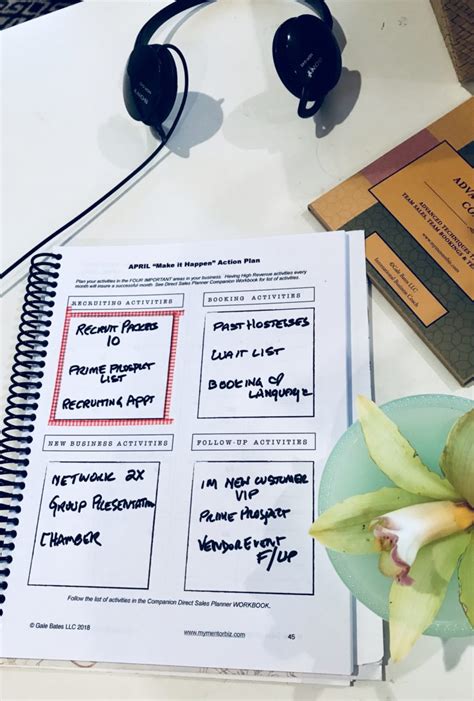 SONY
SONY
APRIL "Make it Happen" Action Plan
Plan your activities in the FOUR IMPORTANT areas in your business. Having High Revenue activities every
month will insure a successful month. See Direct Sales Planner Companion Workbook for list of activities.
RECRUITING ACTIVITIES
RECRUIT PACKETS
10
PRIME PROSPECT
LIST
RECRUITING APPT
BOOKING ACTIVITIES
PAST HOSTESSES
WAIT LIST
BOOKING
LANGUAGE
NEW BUSINESS ACTIVITIES
NETWORK 2X
GROUP PRESENTATION
CHAMBER
FOLLOW-UP ACTIVITIES
NEW CUSTOMER
VIP
PRIME PROSPECT
VENDOR EVENT
F/UP
Follow the list of activities in the Companion Direct Sales Planner WORKBOOK.
© Gale Bates LLC 2018
www.mymentorbiz.com
45
ADVANCED TECHNIQUES
TEAM SALES, TEAM BOOKINGS &
©Gale Bates LLC
International Business Coach